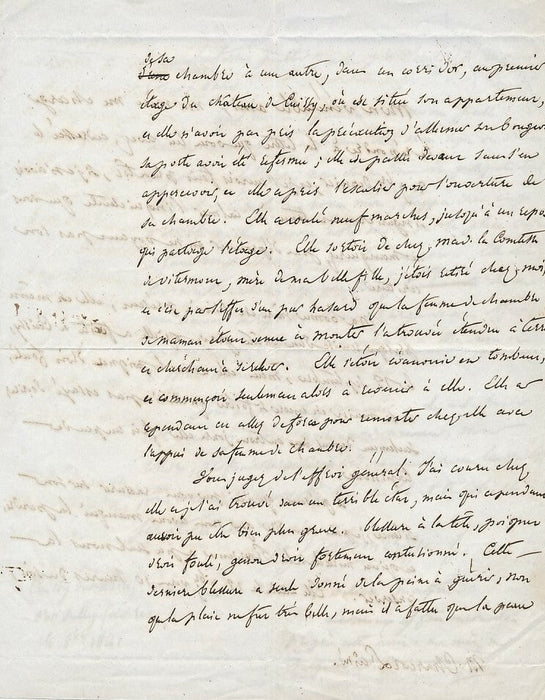 de sa
d'une chambre à une autre, dans un corridor, au premier
étage du château de Cuissy, où est situé son appartement,
et elle n'avoit pas pris la précaution d'allumer son bougeoir
sa porte avoit été refermée; elle a passé devant sans s'en
appercevoir, et elle a pris l'escalier pour l'ouverture de
sa chambre. Elle a roulé neuf marches, jusqu'à un repos
qui partage l'étage. Elle sortoit de chez mad. la Comtesse
de mère de ma belle fille, j'étois entré chez moi,
et c'est par l'effet d'un pur hasard que la femme de chambre
de maman étant venue à monter l'a trouvée étendue à terre
et cherchant à se relever. Elle s'étoit évanouie en tombant,
et commençoit seulement alors à revenir à elle. Elle a
cependant eu assez de force pour remonter chez elle avec
l'appui de sa femme de chambre.
Vous jugez de l'effroi général. J'ai couru chez
elle et je l'ai trouvé dans un terrible état, mais qui cependant
auroit pu être bien plus grave. blessure à la tête, poignet
droit foulé, genou droit fortement contusionné. Cette
dernière blessure a seule donné de la peine à guérir, non
que la plaie ne fut très belle, mais il a fallu que la peau